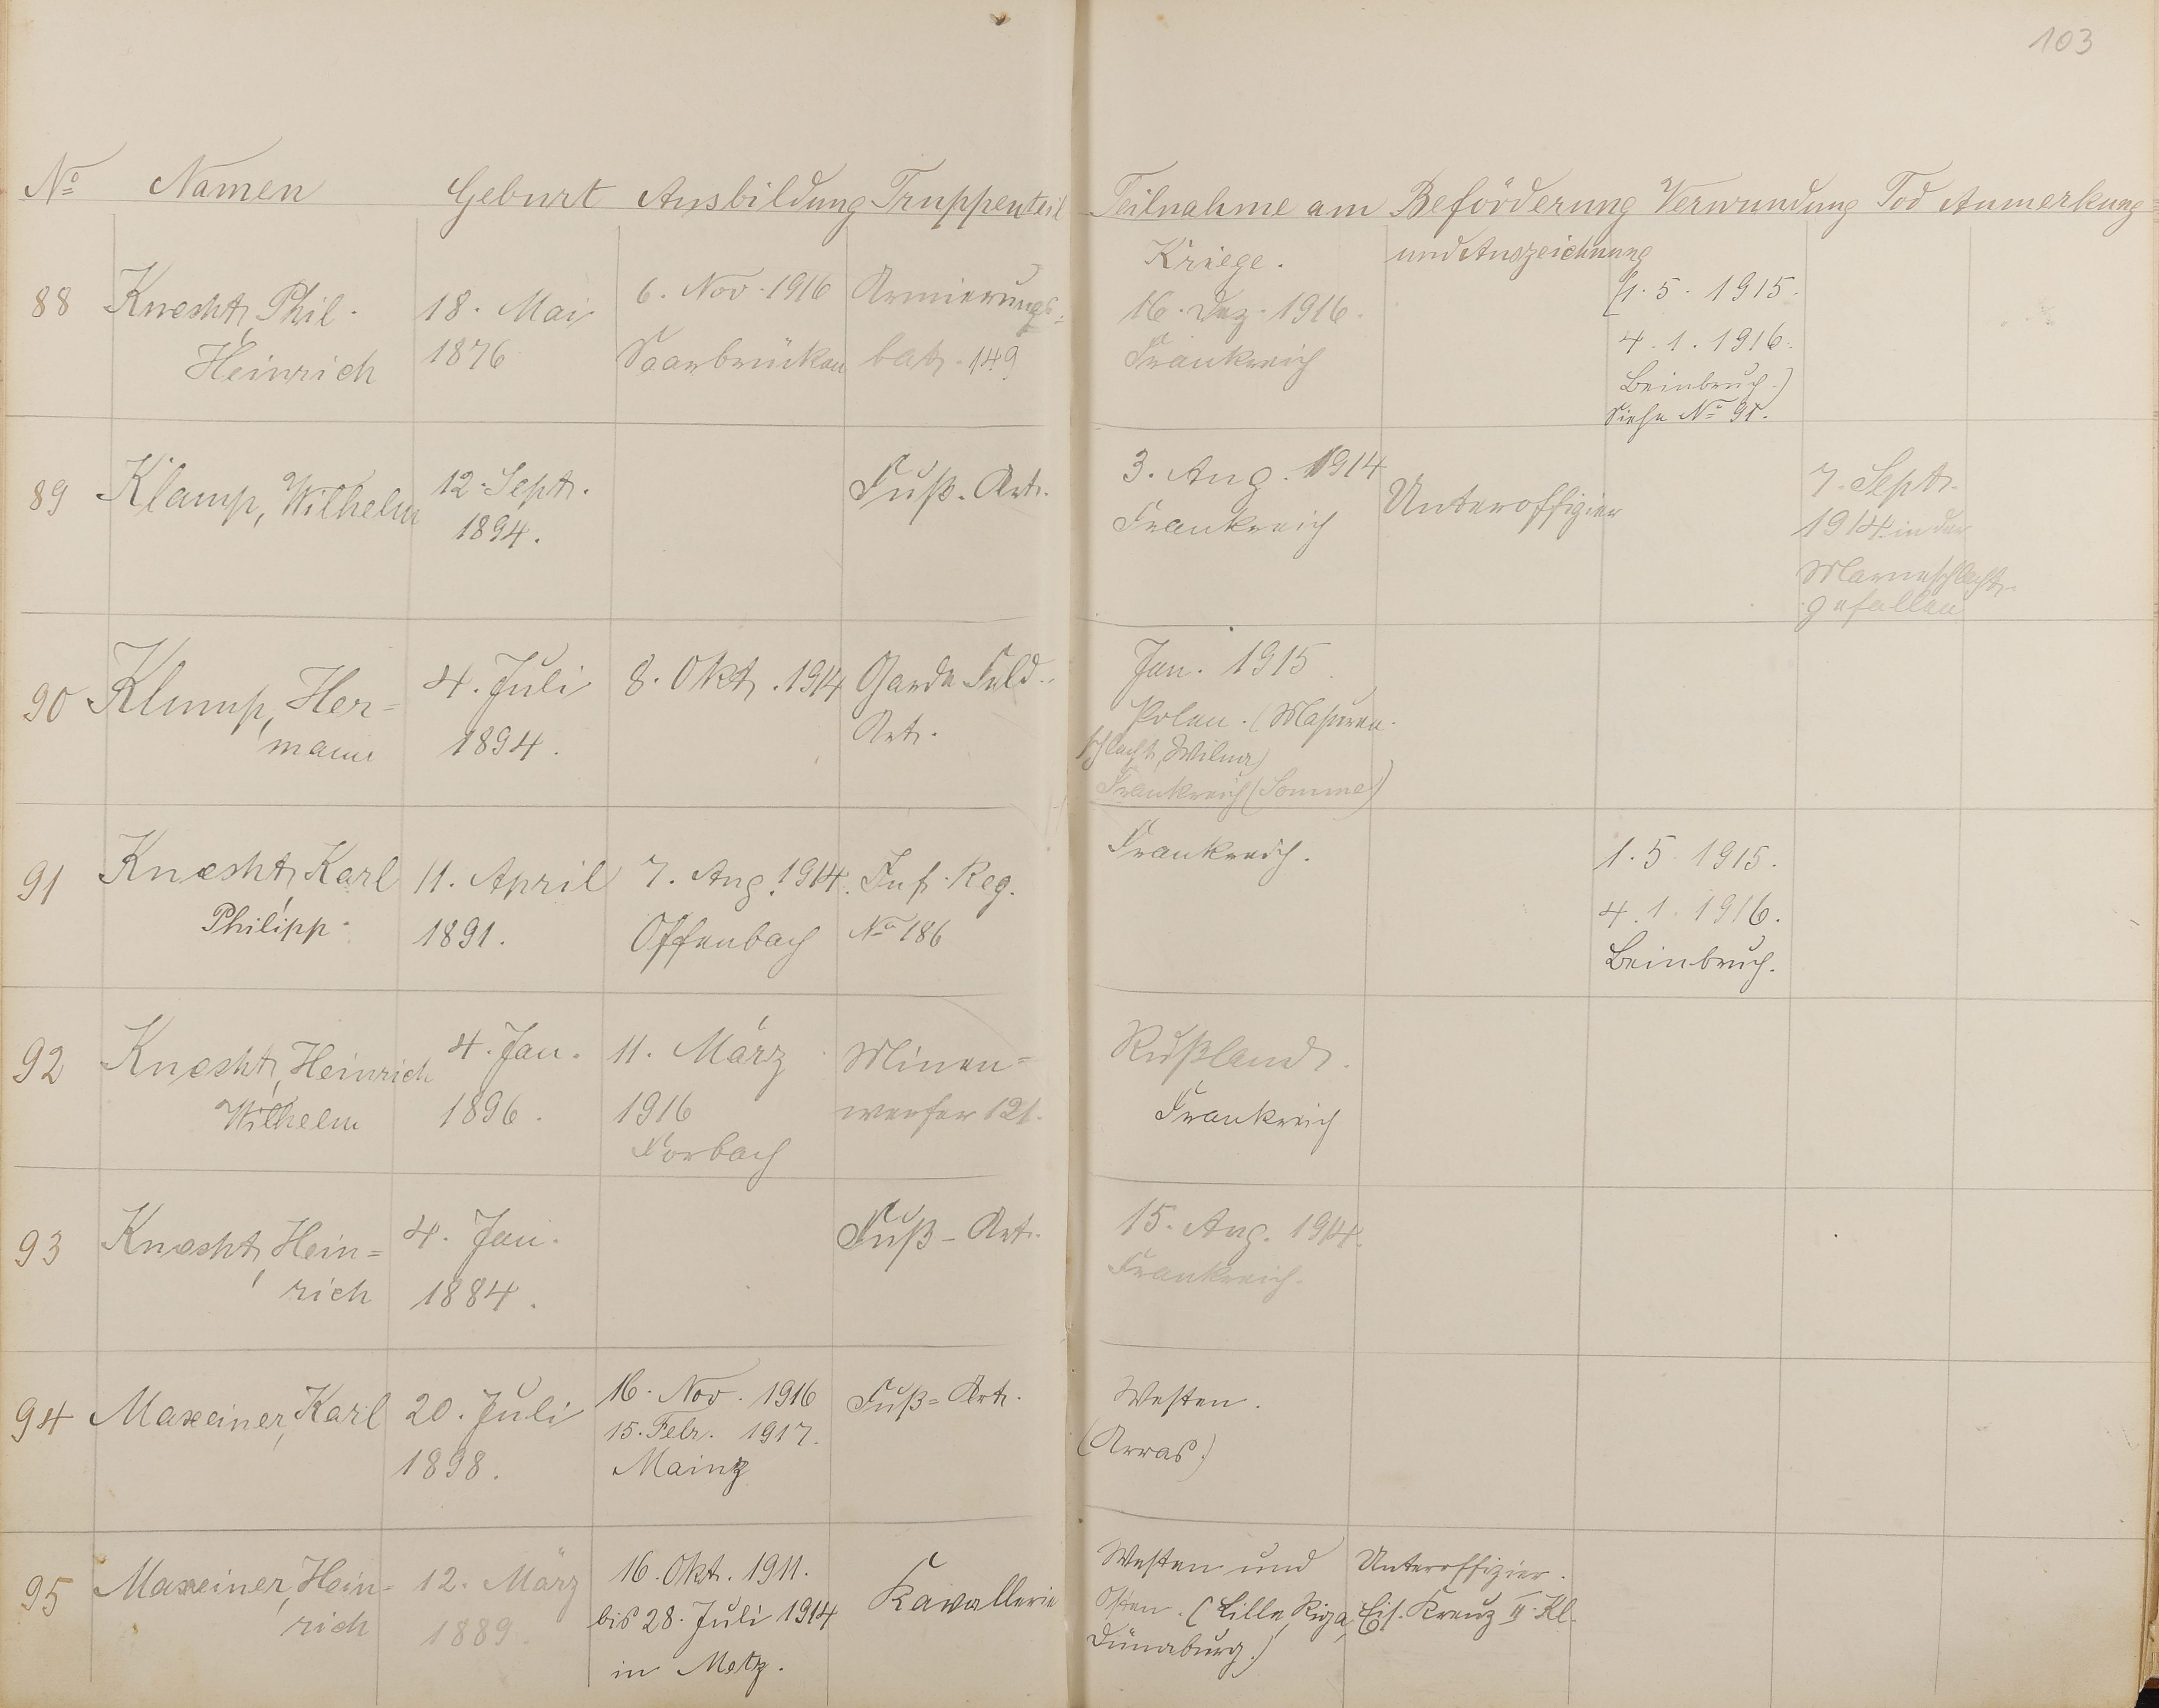 103
No Namen Geburt Ausbildung Truppenteil Teilnahme am Beförderung Verwundung Tod Anmerkung
Kriege. und Auszeichnung
88 Knecht, Phil. 18. Mai 6. Nov. 1916 Armierungs= 16. Dez. 1916. (1. 5. 1915.
Heinrich 1876 Saarbrücken bat. 149 Frankreich 4. 1. 1916.
Beinbruch.)
Siehe No 91.
89 Klamp, Wilhelm 12. Sept. Fuß-Art. 3. Aug. 1914 Unteroffizier 7. Sept.
1894. Frankreich 1914 in der
Marneschlacht
gefallen
90 Klump, Her= 4. Juli 8. Okt. 1914 Garde Feld- Jan. 1915
mann 1894. Art. Polen. (Masuren-
schlacht, Wilna)
Frankreich (Somme)
91 Knecht, Karl 11. April 7. Aug. 1914. Inf. Reg. Frankreich. 1. 5. 1915.
Philipp 1891. Offenbach No 186 4. 1. 1916.
Beinbruch.
92 Knecht, Heinrich 4. Jan. 11. März Minen= Rußland.
Wilhelm 1896. 1916 werfer 121. Frankreich
Forbach
93 Knecht, Hein= 4. Jan. Fuß-Art. 15. Aug. 1914.
rich 1884. Frankreich.
94 Maxeiner, Karl 20. Juli 16. Nov. 1916 Fuß=Art. Westen.
1898. 15. Febr. 1917. (Arras.)
Mainz
95 Maxeiner, Hein- 12. März 16. Okt. 1911. Kavallerie Westen und Unteroffizier.
rich 1889. bis 28. Juli 1914 Osten. (Lille, Riga, Eis. Kreuz II. Kl.
in Metz. Dünaburg.)